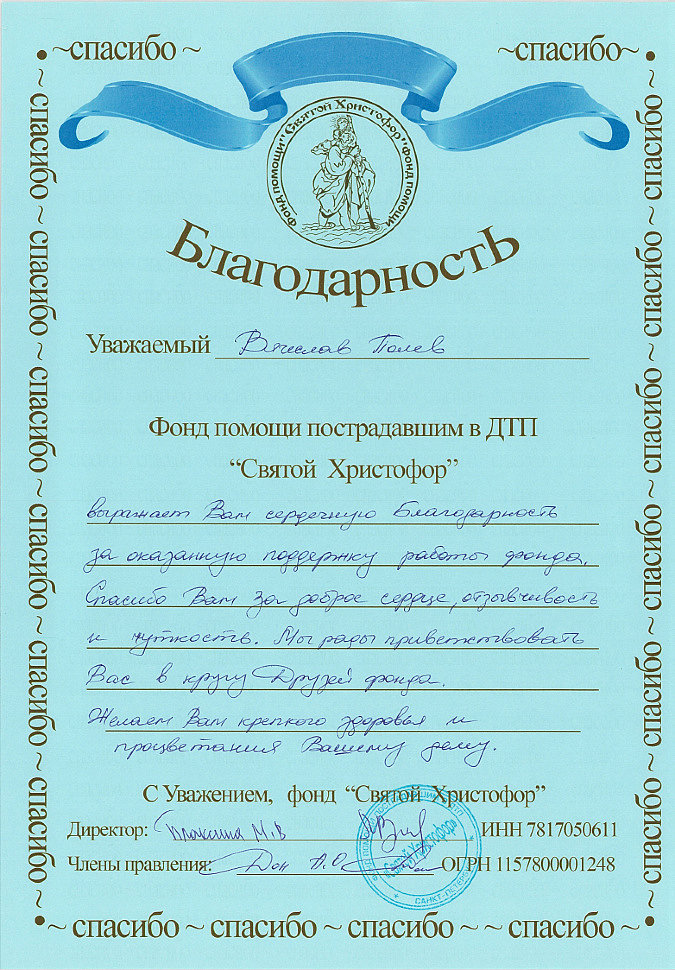 ~спасибо ~ ~спасибо~
Фонд помощи "Святой Христофор" Фонд помощи
Благодарность
Уважаемый Вячеслав Полев
Фонд помощи пострадавшим в ДТП
“Святой Христофор”
выражает Вам сердечную Благодарность
за оказанную поддержку работы фонда.
Спасибо Вам за доброе сердце, отзывчивость
и чуткость. Мы рады приветствовать
Вас в кругу Друзей фонда.
Желаем Вам крепкого здоровья и
процветания Вашему делу.
С Уважением, фонд “Святой Христофор”
Директор: М.В ИНН 7817050611
Члены правления: ОГРН 1157800001248
"Святой Христофор"
САНКТ-ПЕТЕРБ
~ спасибо ~ спасибо ~ спасибо ~ спасибо ~ спасибо ~ спасибо ~
~ спасибо ~ спасибо ~ спасибо ~ спасибо ~ спасибо ~ спасибо ~
~ спасибо ~ спасибо ~ спасибо ~ ~ спасибо ~